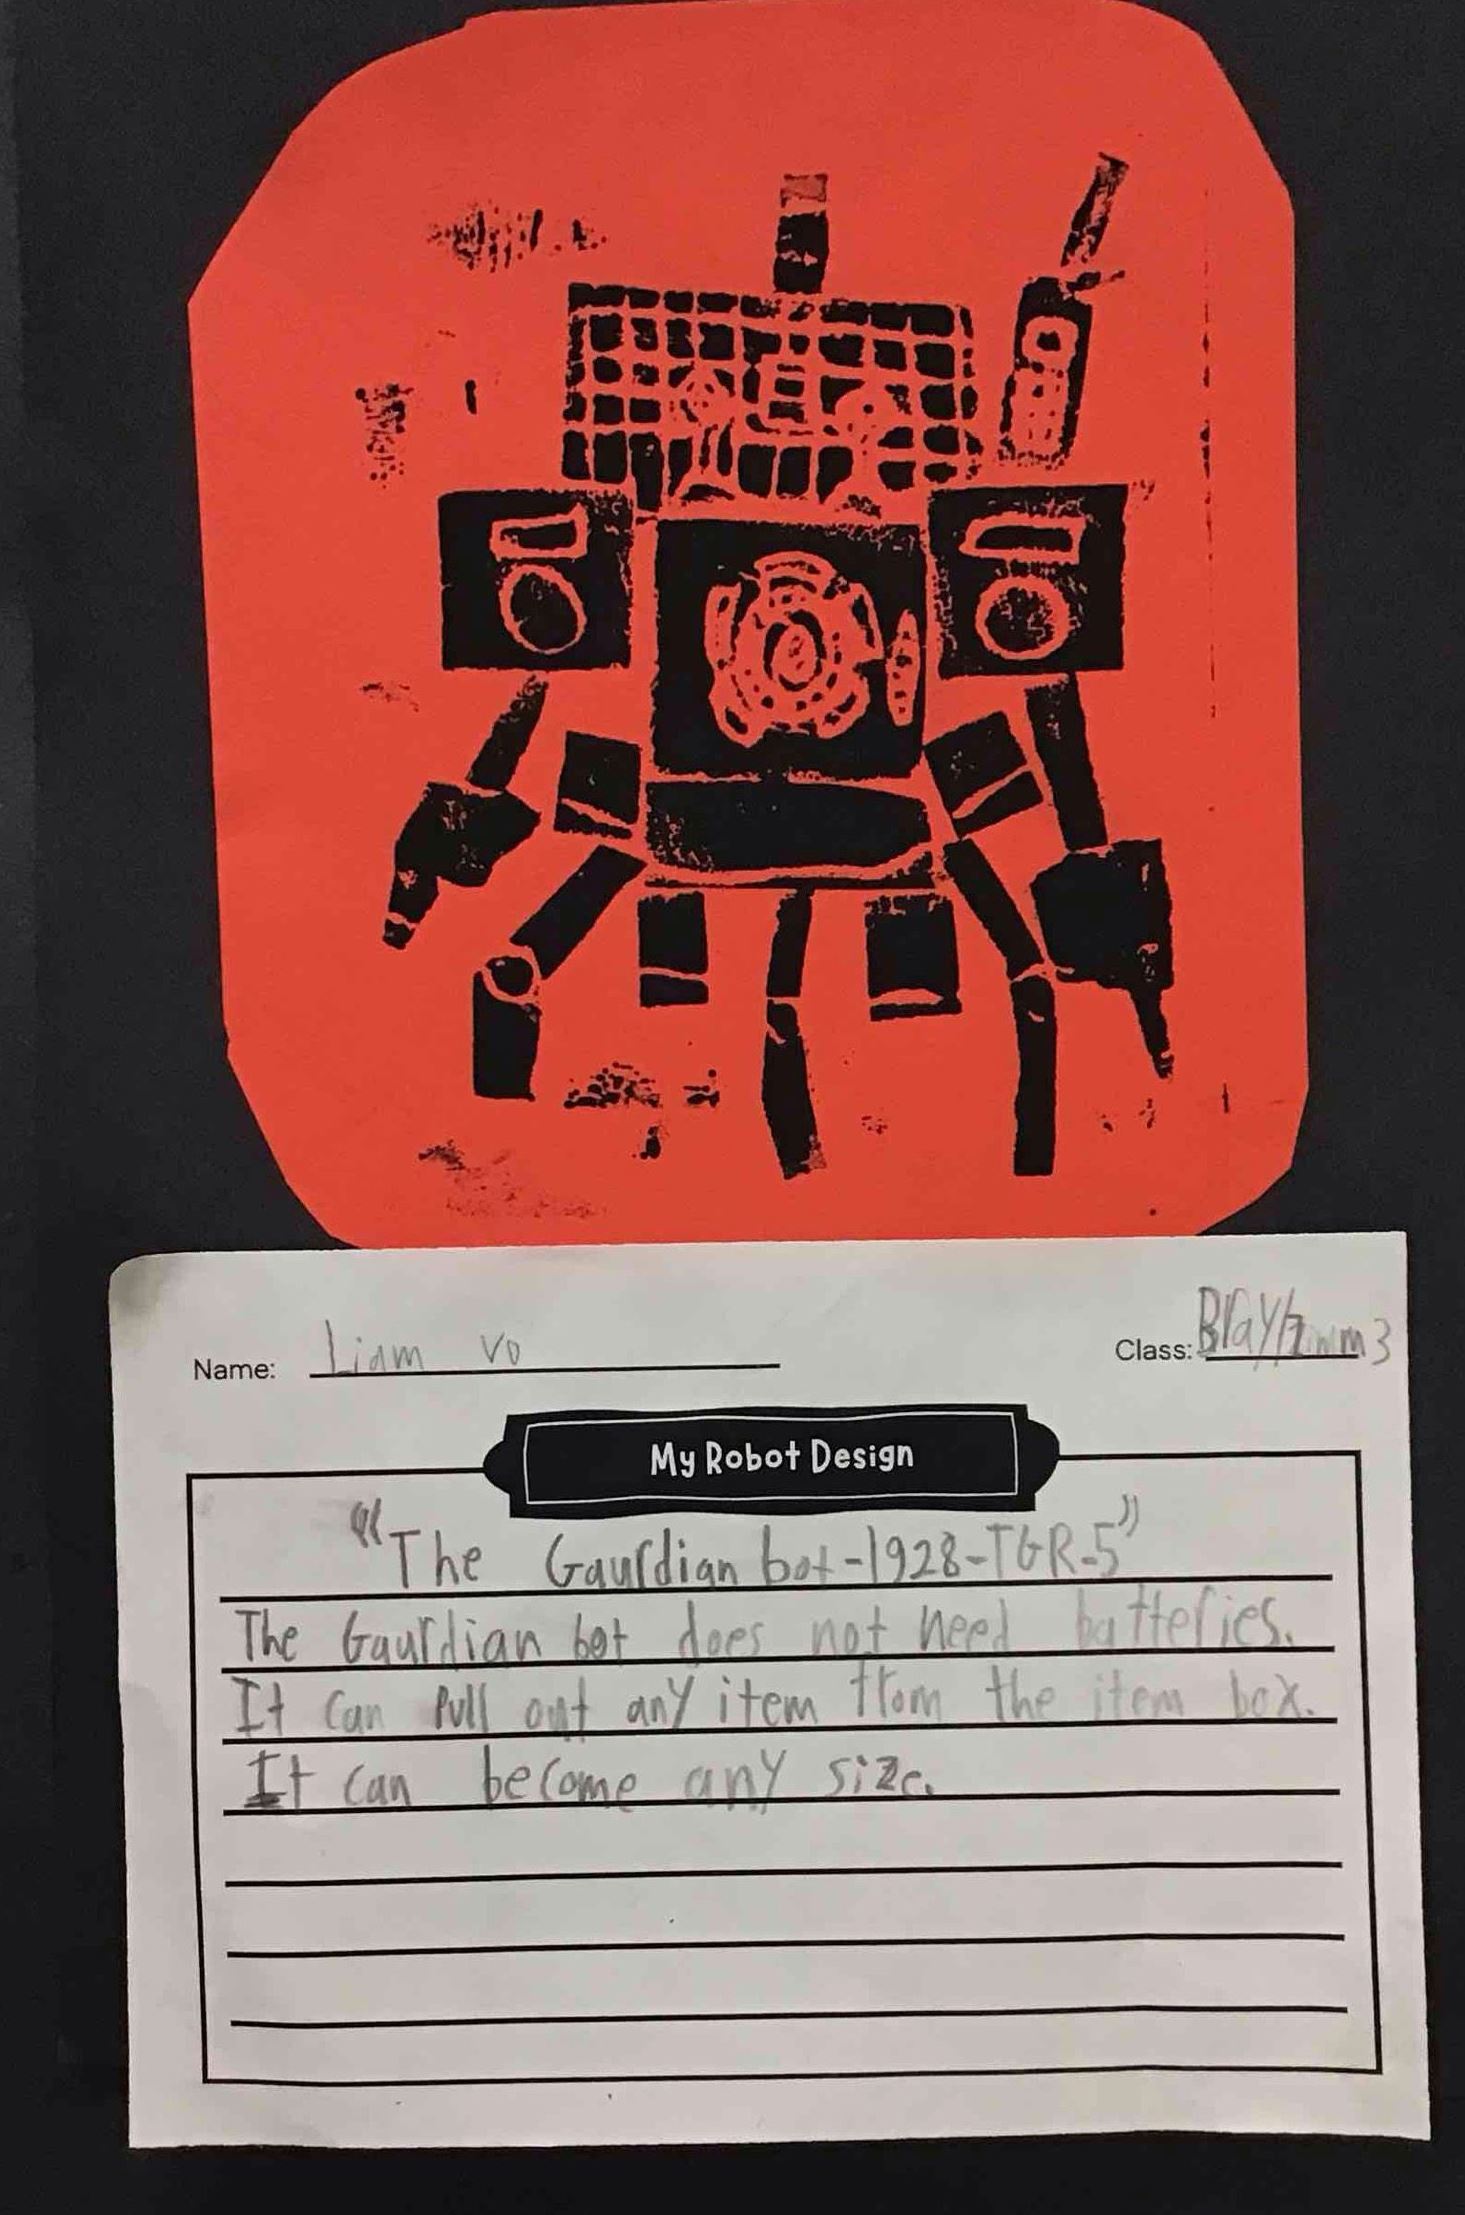 Name: Liam Vo
Class: Bray/Zimm 3
My Robot Design
"The Gaurdian bot-1928-TGR-5"
The Gaurdian bot does not need batteries.
It can pull out any item from the item box.
It can become any size.